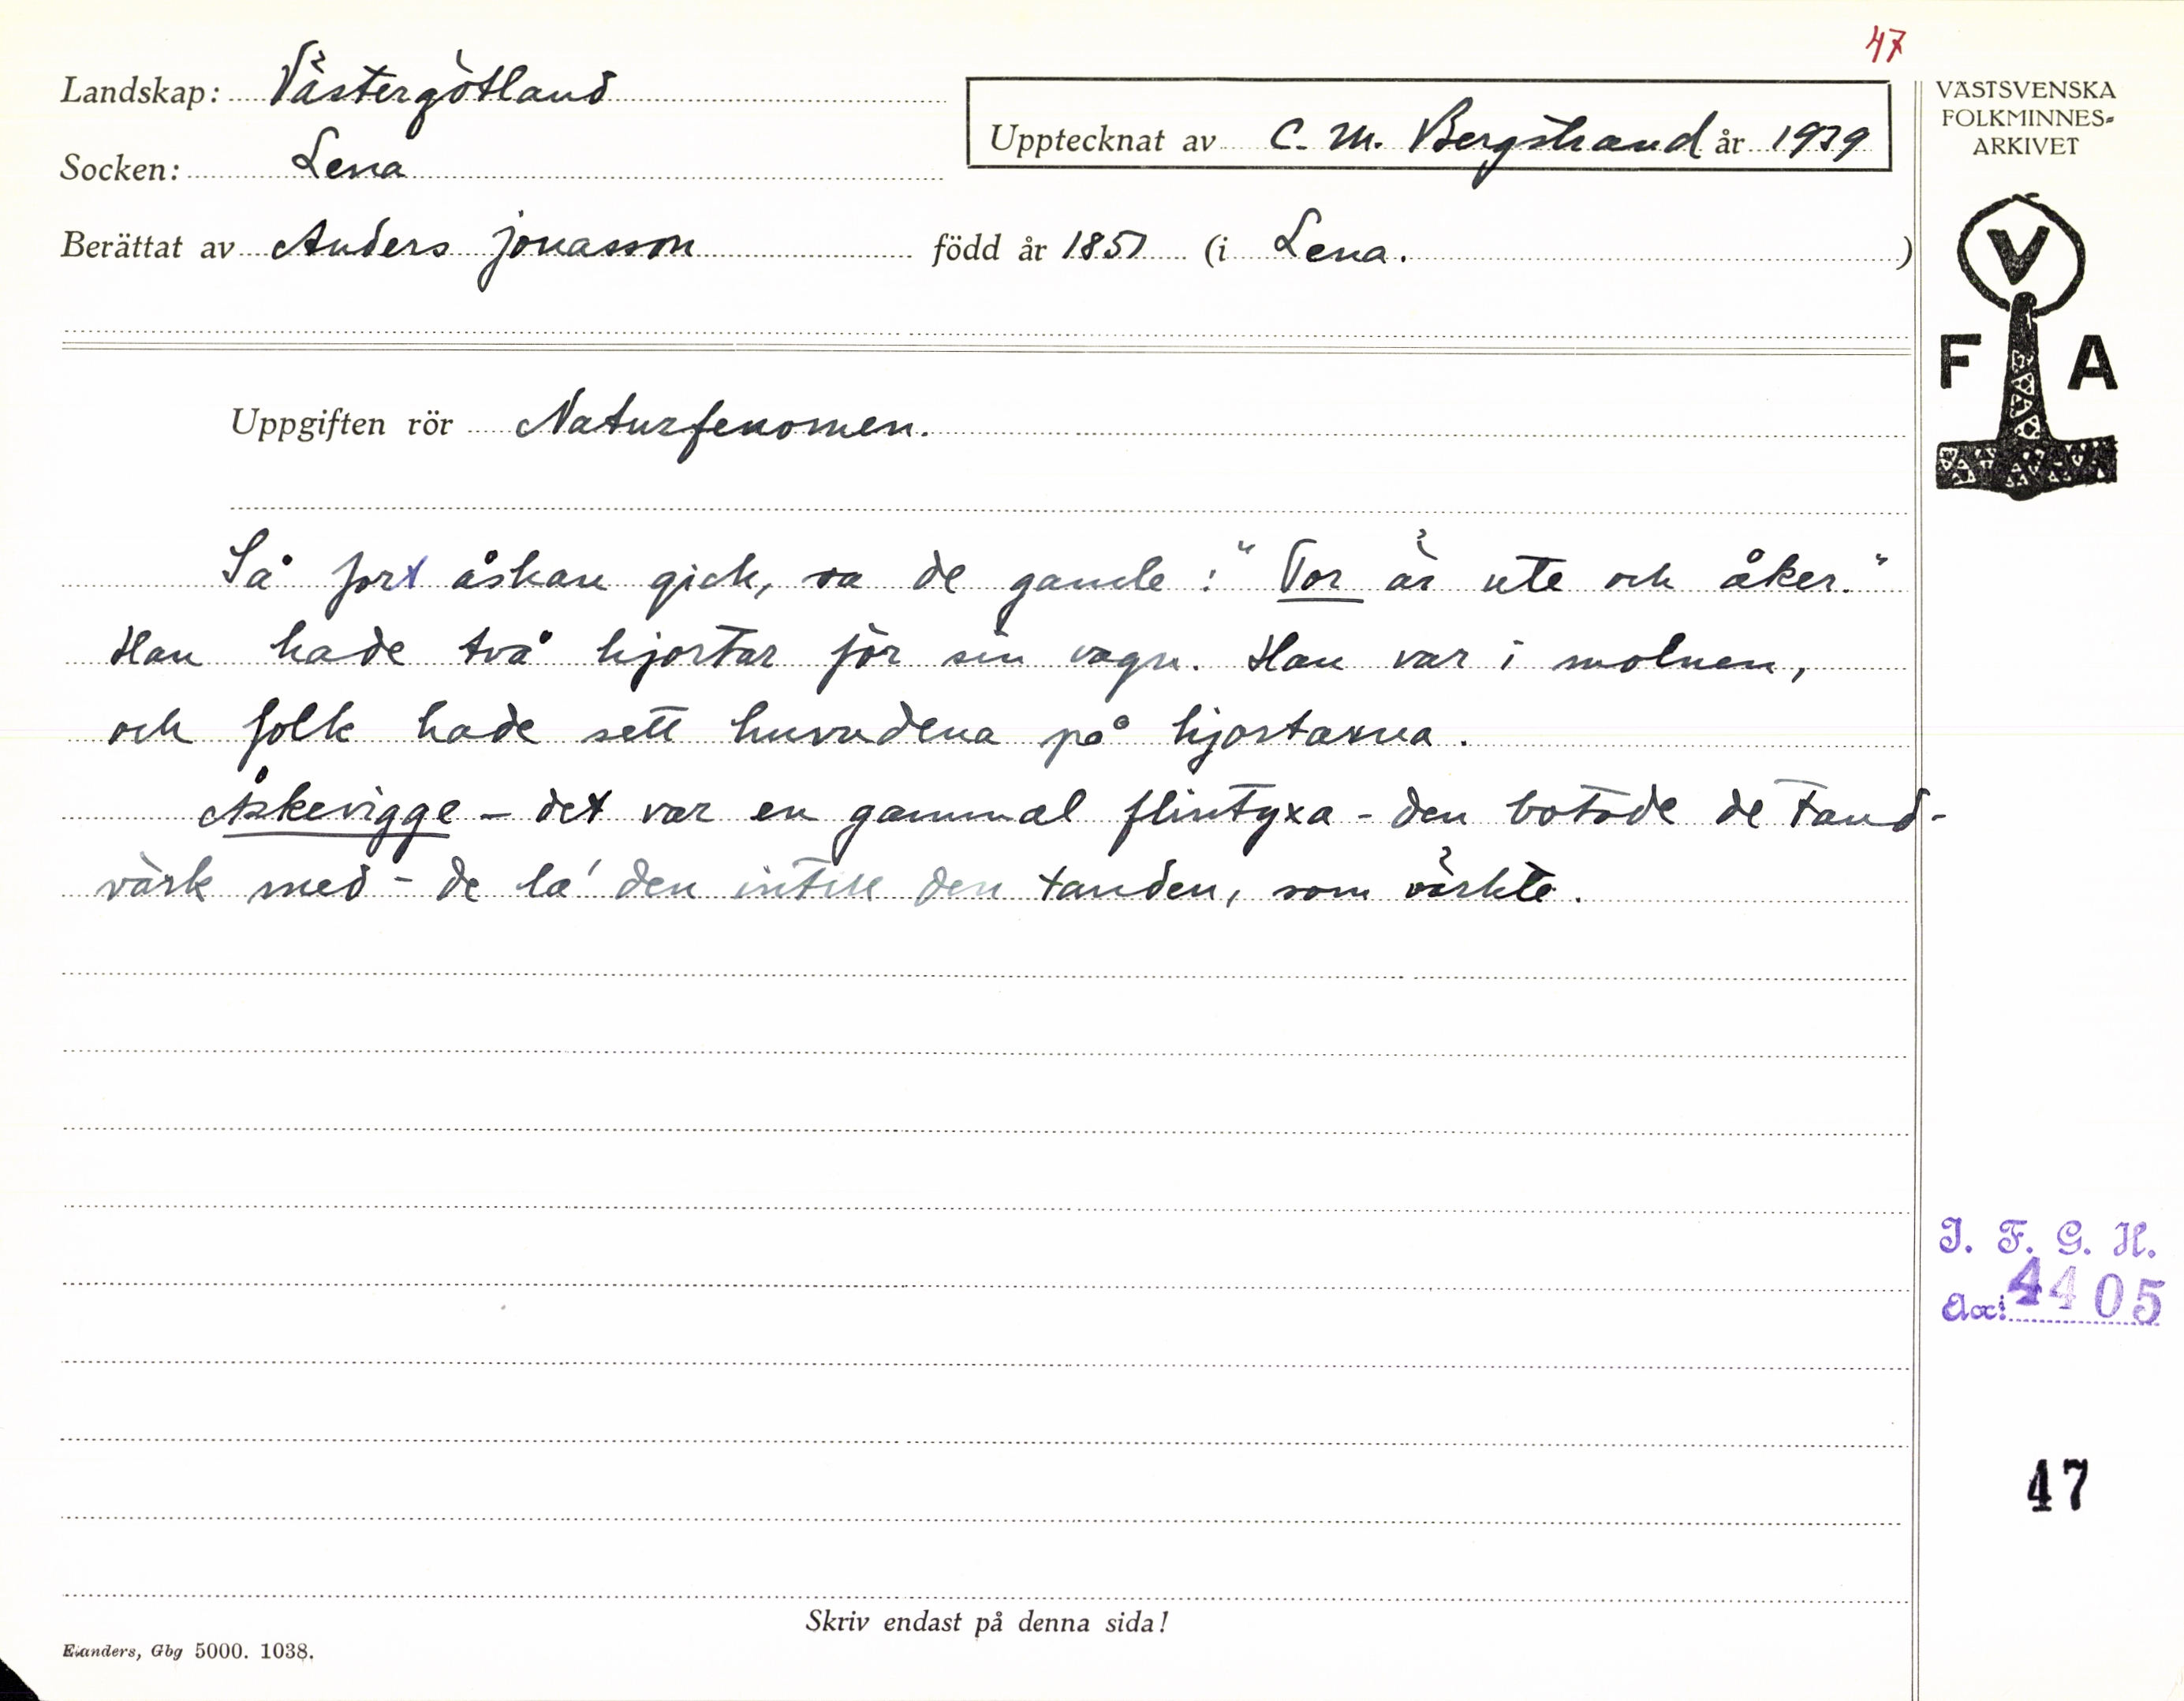 47
Landskap: Västergötland
Socken: Lena
Upptecknat av C. M. Bergstrand år 1939
Berättat av Anders Jonasson född år 1851 (i Lena.)
VÄSTSVENSKA
FOLKMINNES-
ARKIVET
V
F A
Uppgiften rör Naturfenomen.
Så fort åskan gick, sa de gamle: "Tor är ute och åker."
Han hade två hjortar för sin vagn. Han var i molnen,
och folk hade sett huvudena på hjortarna.
Åskevigge – det var en gammal flintyxa – den botade de tand-
värk med – de la' den intill den tanden, som värkte.
I. F. G. H.
Acc: 4405
47
Skriv endast på denna sida!
Elanders, Gbg 5000. 1038.